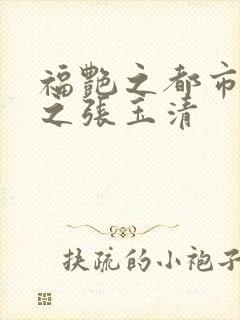 福艷之都市
之张玉清
扶疏的小袍子